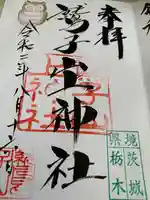 奉拝
鷲子山神社
令和二年八月十六日
県境
茨城
栃木